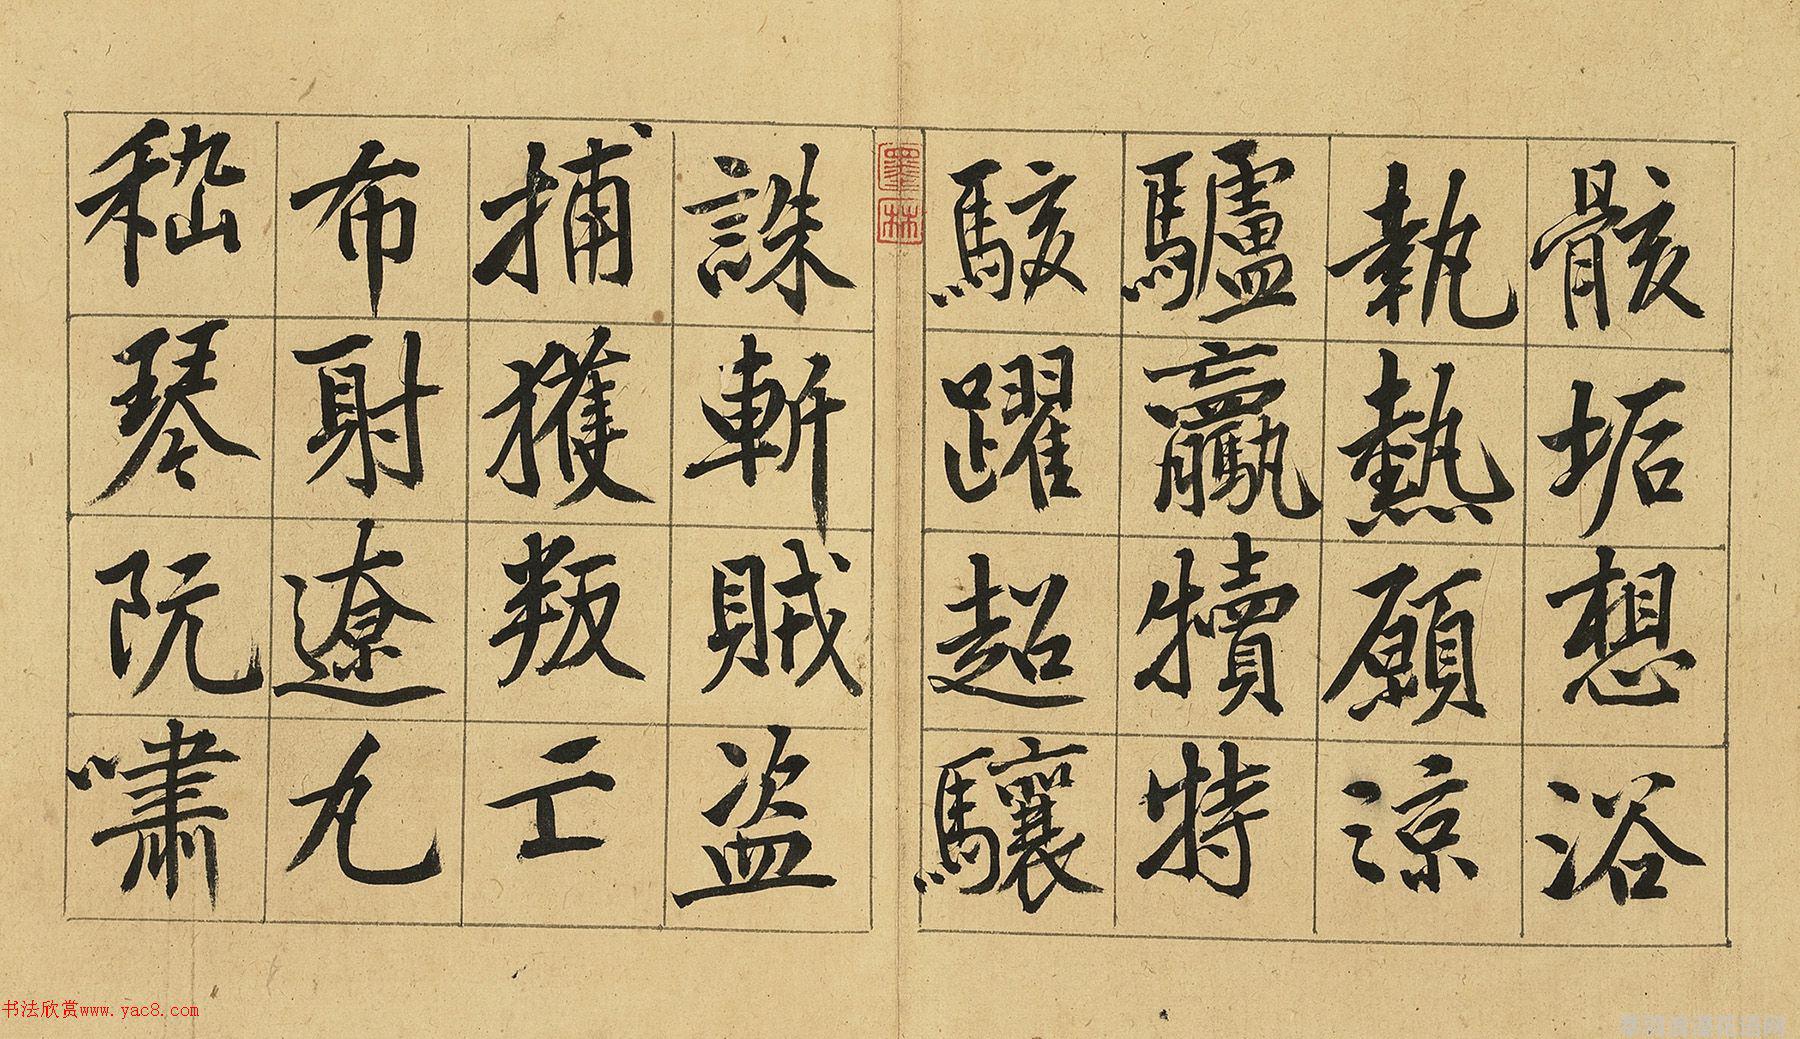 骸垢想浴
執熱願涼
驢驘犢特
駭躍超驤
墨林
誅斬賊盜
捕獲叛亡
布射遼丸
嵇琴阮嘯
书法欣赏www.yac8.com